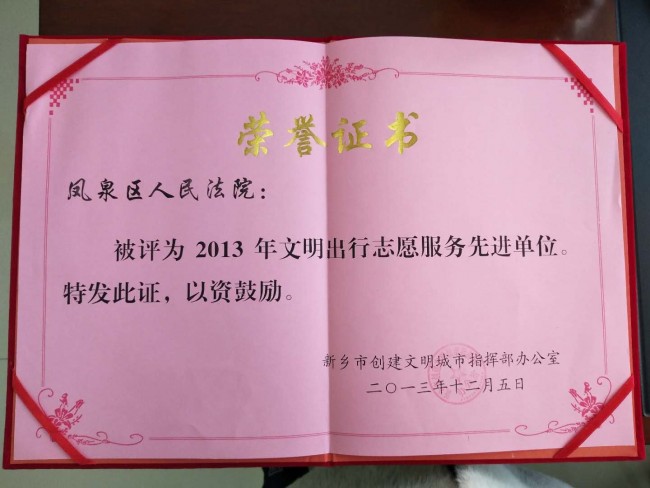 荣誉证书
凤泉区人民法院：
被评为 2013 年文明出行志愿服务先进单位。
特发此证，以资鼓励。
新乡市创建文明城市指挥部办公室
二〇一三年十二月五日